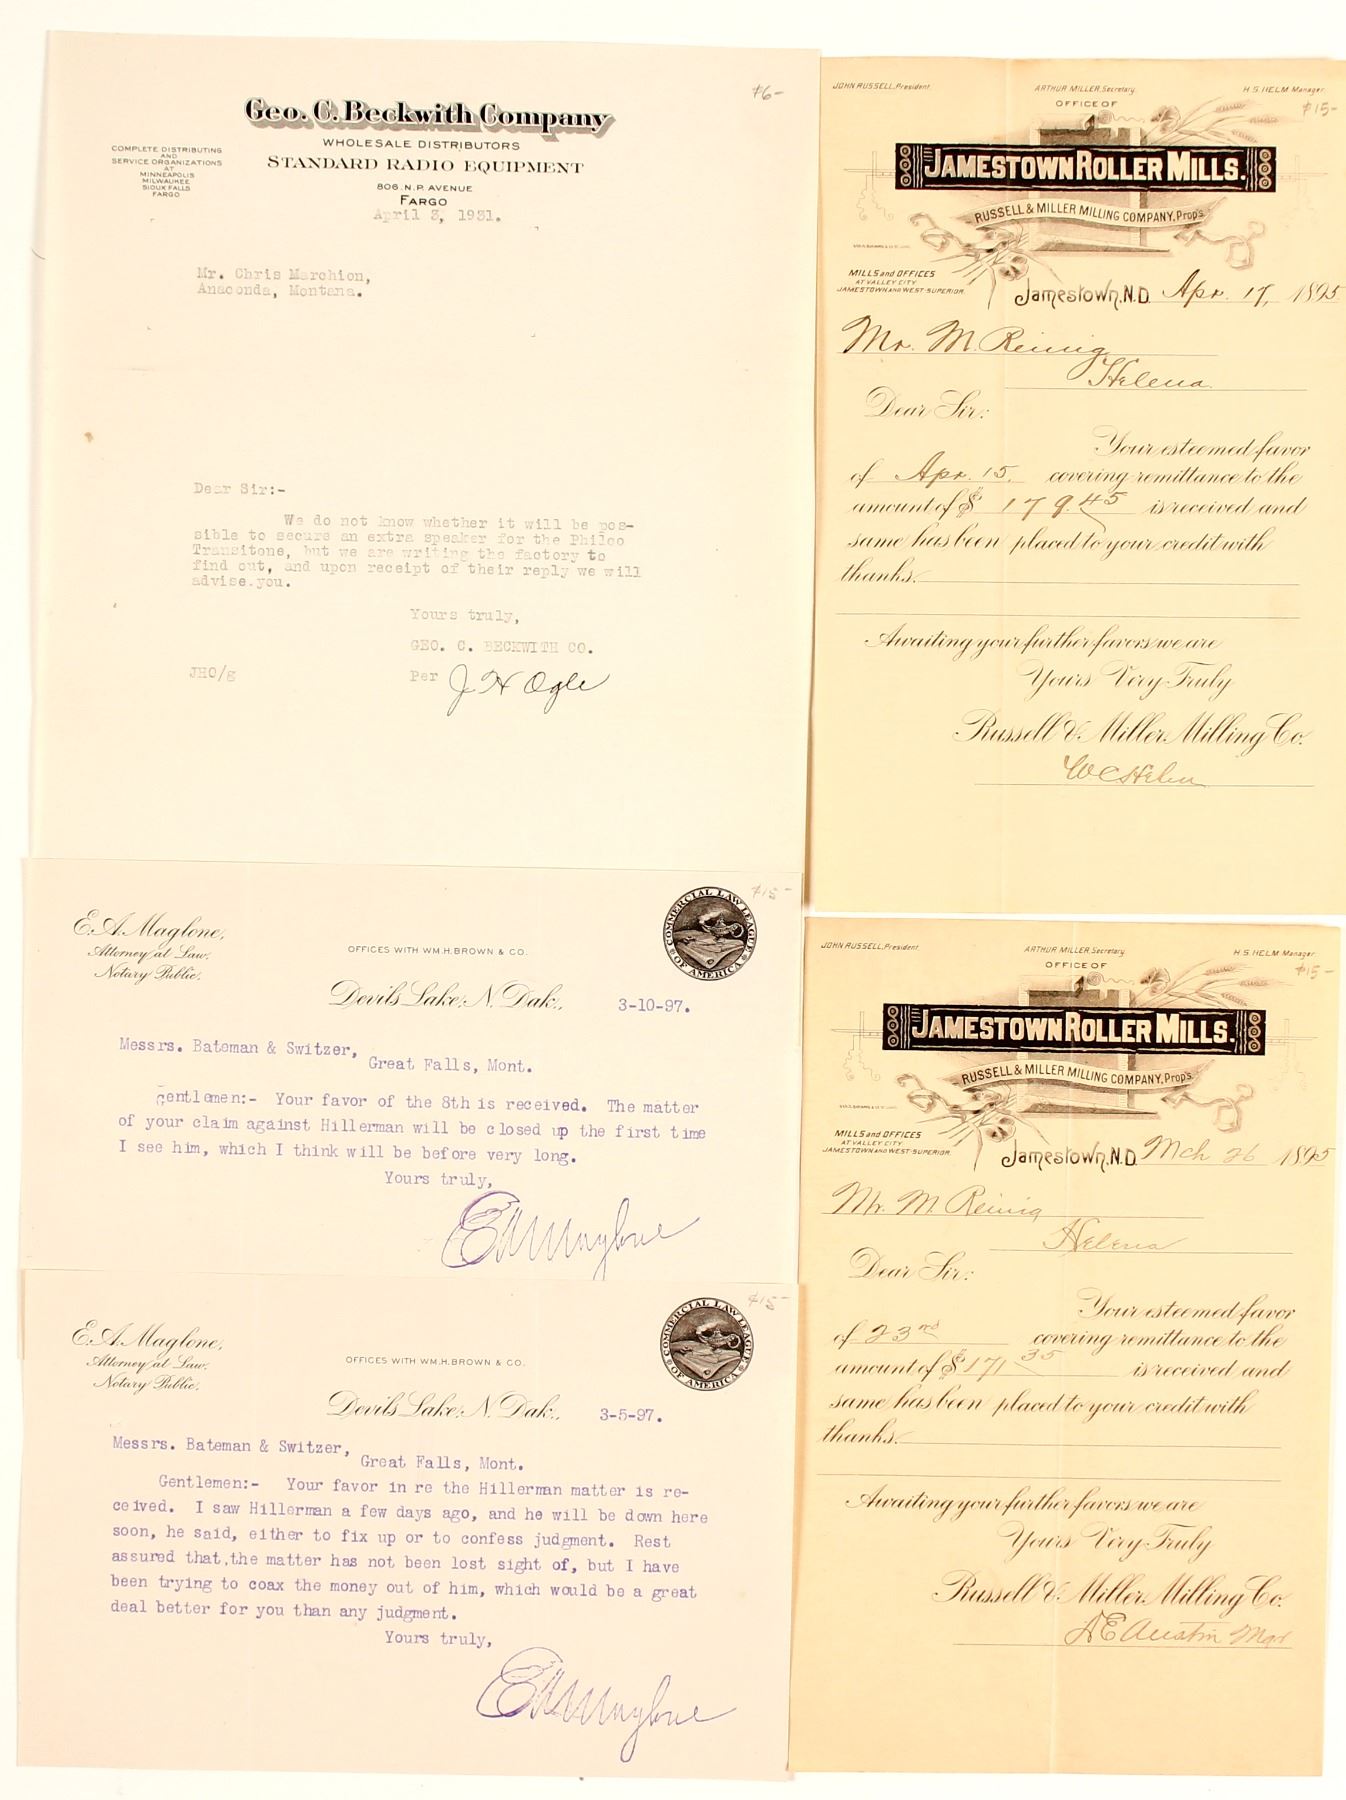 $6-
Geo. C. Beckwith Company
WHOLESALE DISTRIBUTORS
STANDARD RADIO EQUIPMENT
806 N.P. AVENUE
FARGO
COMPLETE DISTRIBUTING
AND
SERVICE ORGANIZATIONS
AT
MINNEAPOLIS
MILWAUKEE
SIOUX FALLS
FARGO
April 3, 1931.
Mr. Chris Marchion,
Anaconda, Montana.
Dear Sir:-
We do not know whether it will be pos-
sible to secure an extra speaker for the Philco
Transitone, but we are writing the factory to
find out, and upon receipt of their reply we will
advise you.
Yours truly,
GEO. C. BECKWITH CO.
JHO/g
Per J H Ogle
$15-
E. A. Maglone,
Attorney at Law.
Notary Public.
OFFICES WITH WM. H. BROWN & CO.
COMMERCIAL LAW LEAGUE
OF AMERICA
Devils Lake, N. Dak., 3-10-97.
Messrs. Bateman & Switzer,
Great Falls, Mont.
Gentlemen:- Your favor of the 8th is received. The matter
of your claim against Hillerman will be closed up the first time
I see him, which I think will be before very long.
Yours truly,
E A Maglone
$15-
E. A. Maglone,
Attorney at Law.
Notary Public.
OFFICES WITH WM. H. BROWN & CO.
COMMERCIAL LAW LEAGUE
OF AMERICA
Devils Lake, N. Dak., 3-5-97.
Messrs. Bateman & Switzer,
Great Falls, Mont.
Gentlemen:- Your favor in re the Hillerman matter is re-
ceived. I saw Hillerman a few days ago, and he will be down here
soon, he said, either to fix up or to confess judgment. Rest
assured that the matter has not been lost sight of, but I have
been trying to coax the money out of him, which would be a great
deal better for you than any judgment.
Yours truly,
E A Maglone
JOHN RUSSELL, President.
ARTHUR MILLER, Secretary.
H. S. HELM Manager.
$15-
OFFICE OF
JAMESTOWN ROLLER MILLS.
RUSSELL & MILLER MILLING COMPANY, Prop's.
MILLS and OFFICES
AT VALLEY CITY
JAMESTOWN AND WEST-SUPERIOR.
Jamestown, N.D. Apr. 17, 1895
Mr. M. Reinig
Helena.
Dear Sir:
Your esteemed favor
of Apr. 15. covering remittance to the
amount of $ 179.45 is received and
same has been placed to your credit with
thanks.
Awaiting your further favors we are
Yours Very Truly
Russell & Miller Milling Co.
W C Helm
JOHN RUSSELL, President.
ARTHUR MILLER, Secretary.
H. S. HELM Manager
$15-
OFFICE OF
JAMESTOWN ROLLER MILLS.
RUSSELL & MILLER MILLING COMPANY, Prop's.
MILLS and OFFICES
AT VALLEY CITY.
JAMESTOWN AND WEST-SUPERIOR.
Jamestown, N.D. Mch 26 1895
Mr. M. Reinig
Helena
Dear Sir:
Your esteemed favor
of 23rd covering remittance to the
amount of $ 171 35 is received and
same has been placed to your credit with
thanks.
Awaiting your further favors we are
Yours Very Truly
Russell & Miller Milling Co.
Austin Mgr